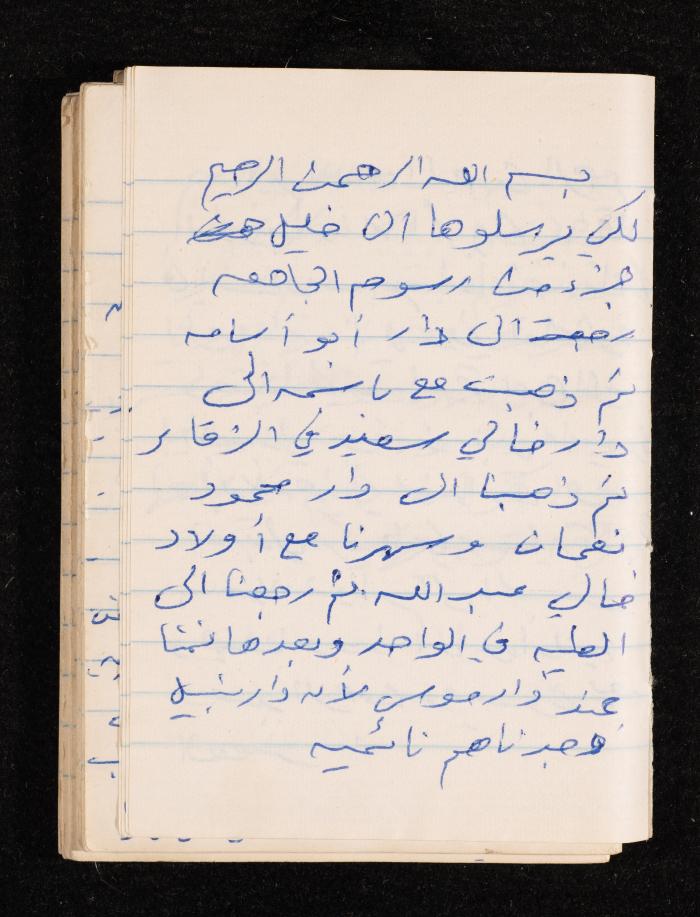 بسم الله الرحمن الرحيم
لكي يرسلوها الى خليل
جزء من رسوم الجامعه
رجعت الى دار أبو أسامه
ثم ذهبت مع باسمه الى
دار خالي سعيد في الزقا
ثم ذهبنا الى دار محمود
نعمان وسهرنا مع أولاد
خالي عبد الله. ثم رجعنا الى
العليه في الواحد وبعدها نمنا
عند دار موسى لأنه دار نبيل
وجدناهم نائمين